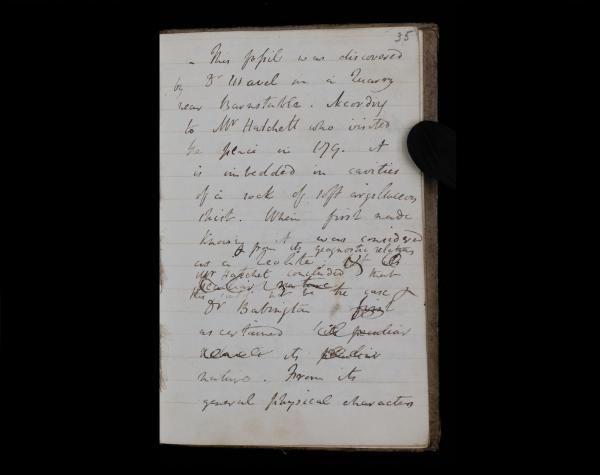 35
- This fossil was discovered
by Dr Wavel in a Quarry
near Barnstable. According
to Mr Hatchett who visited
the place in 179. It
is imbedded in cavities
of a rock of soft argillaceous
shist. When first made
known it was considered
from its geognostic relations
as a Zeolite.
Mr Hatchet concluded that
peculiar nature
this not be the case
Dr Babington first
ascertained the peculiar
its peculiar
nature. From its
general physical characters